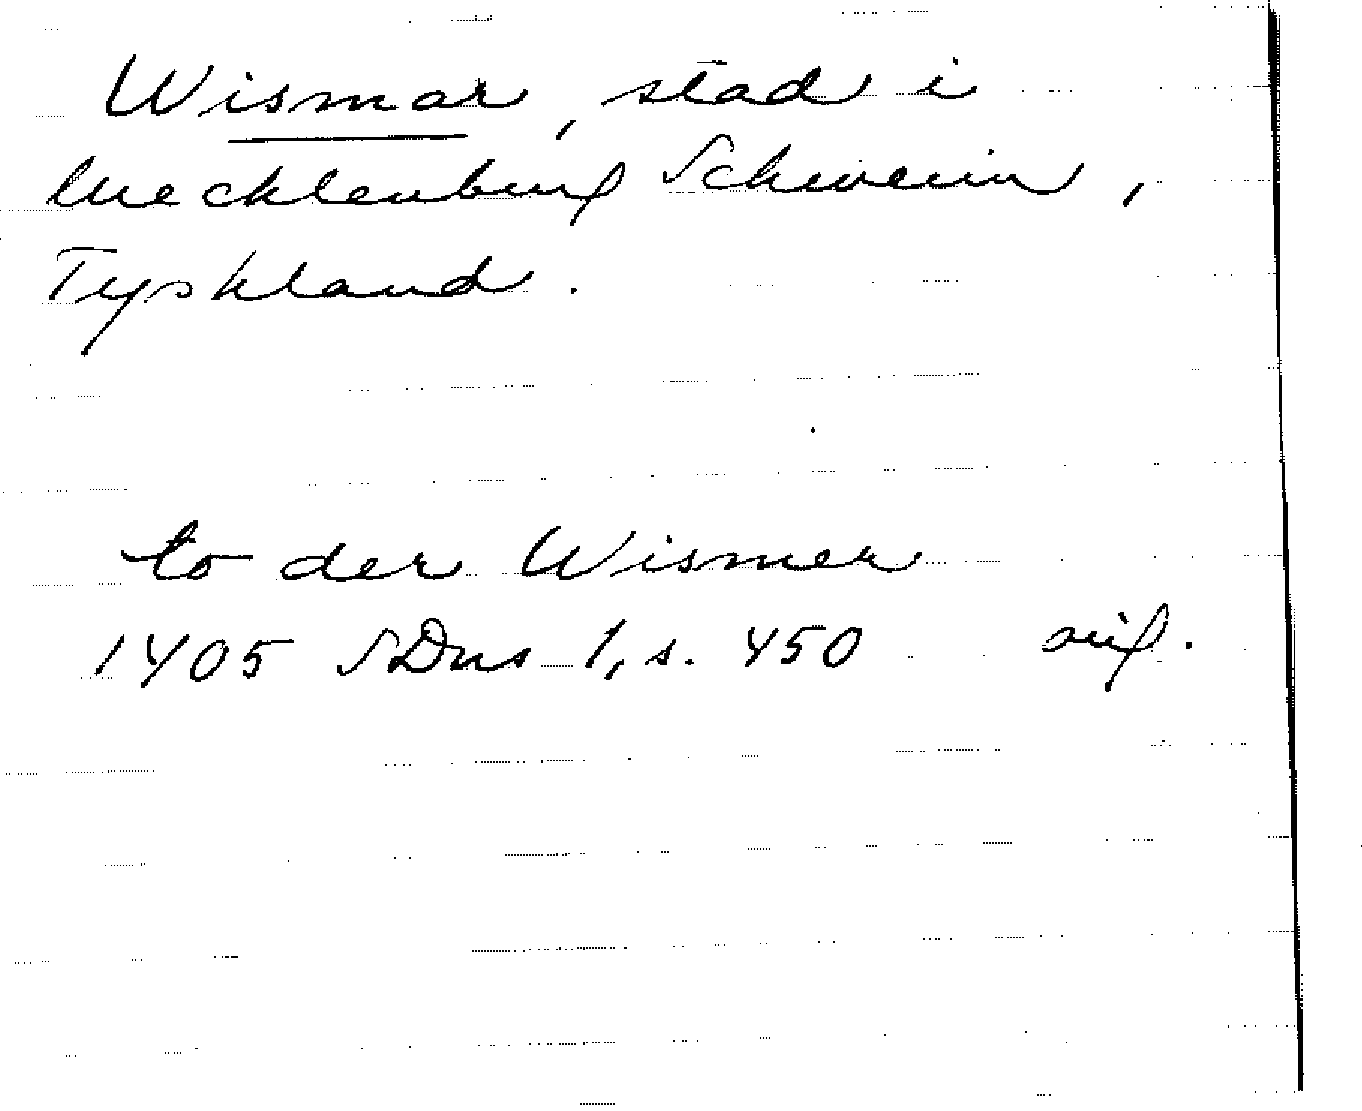 Wismar, stad i
Mecklenburg Schwerin,
Tyskland.
to der Wismer
1405 SDns 1, s. 450 orig.